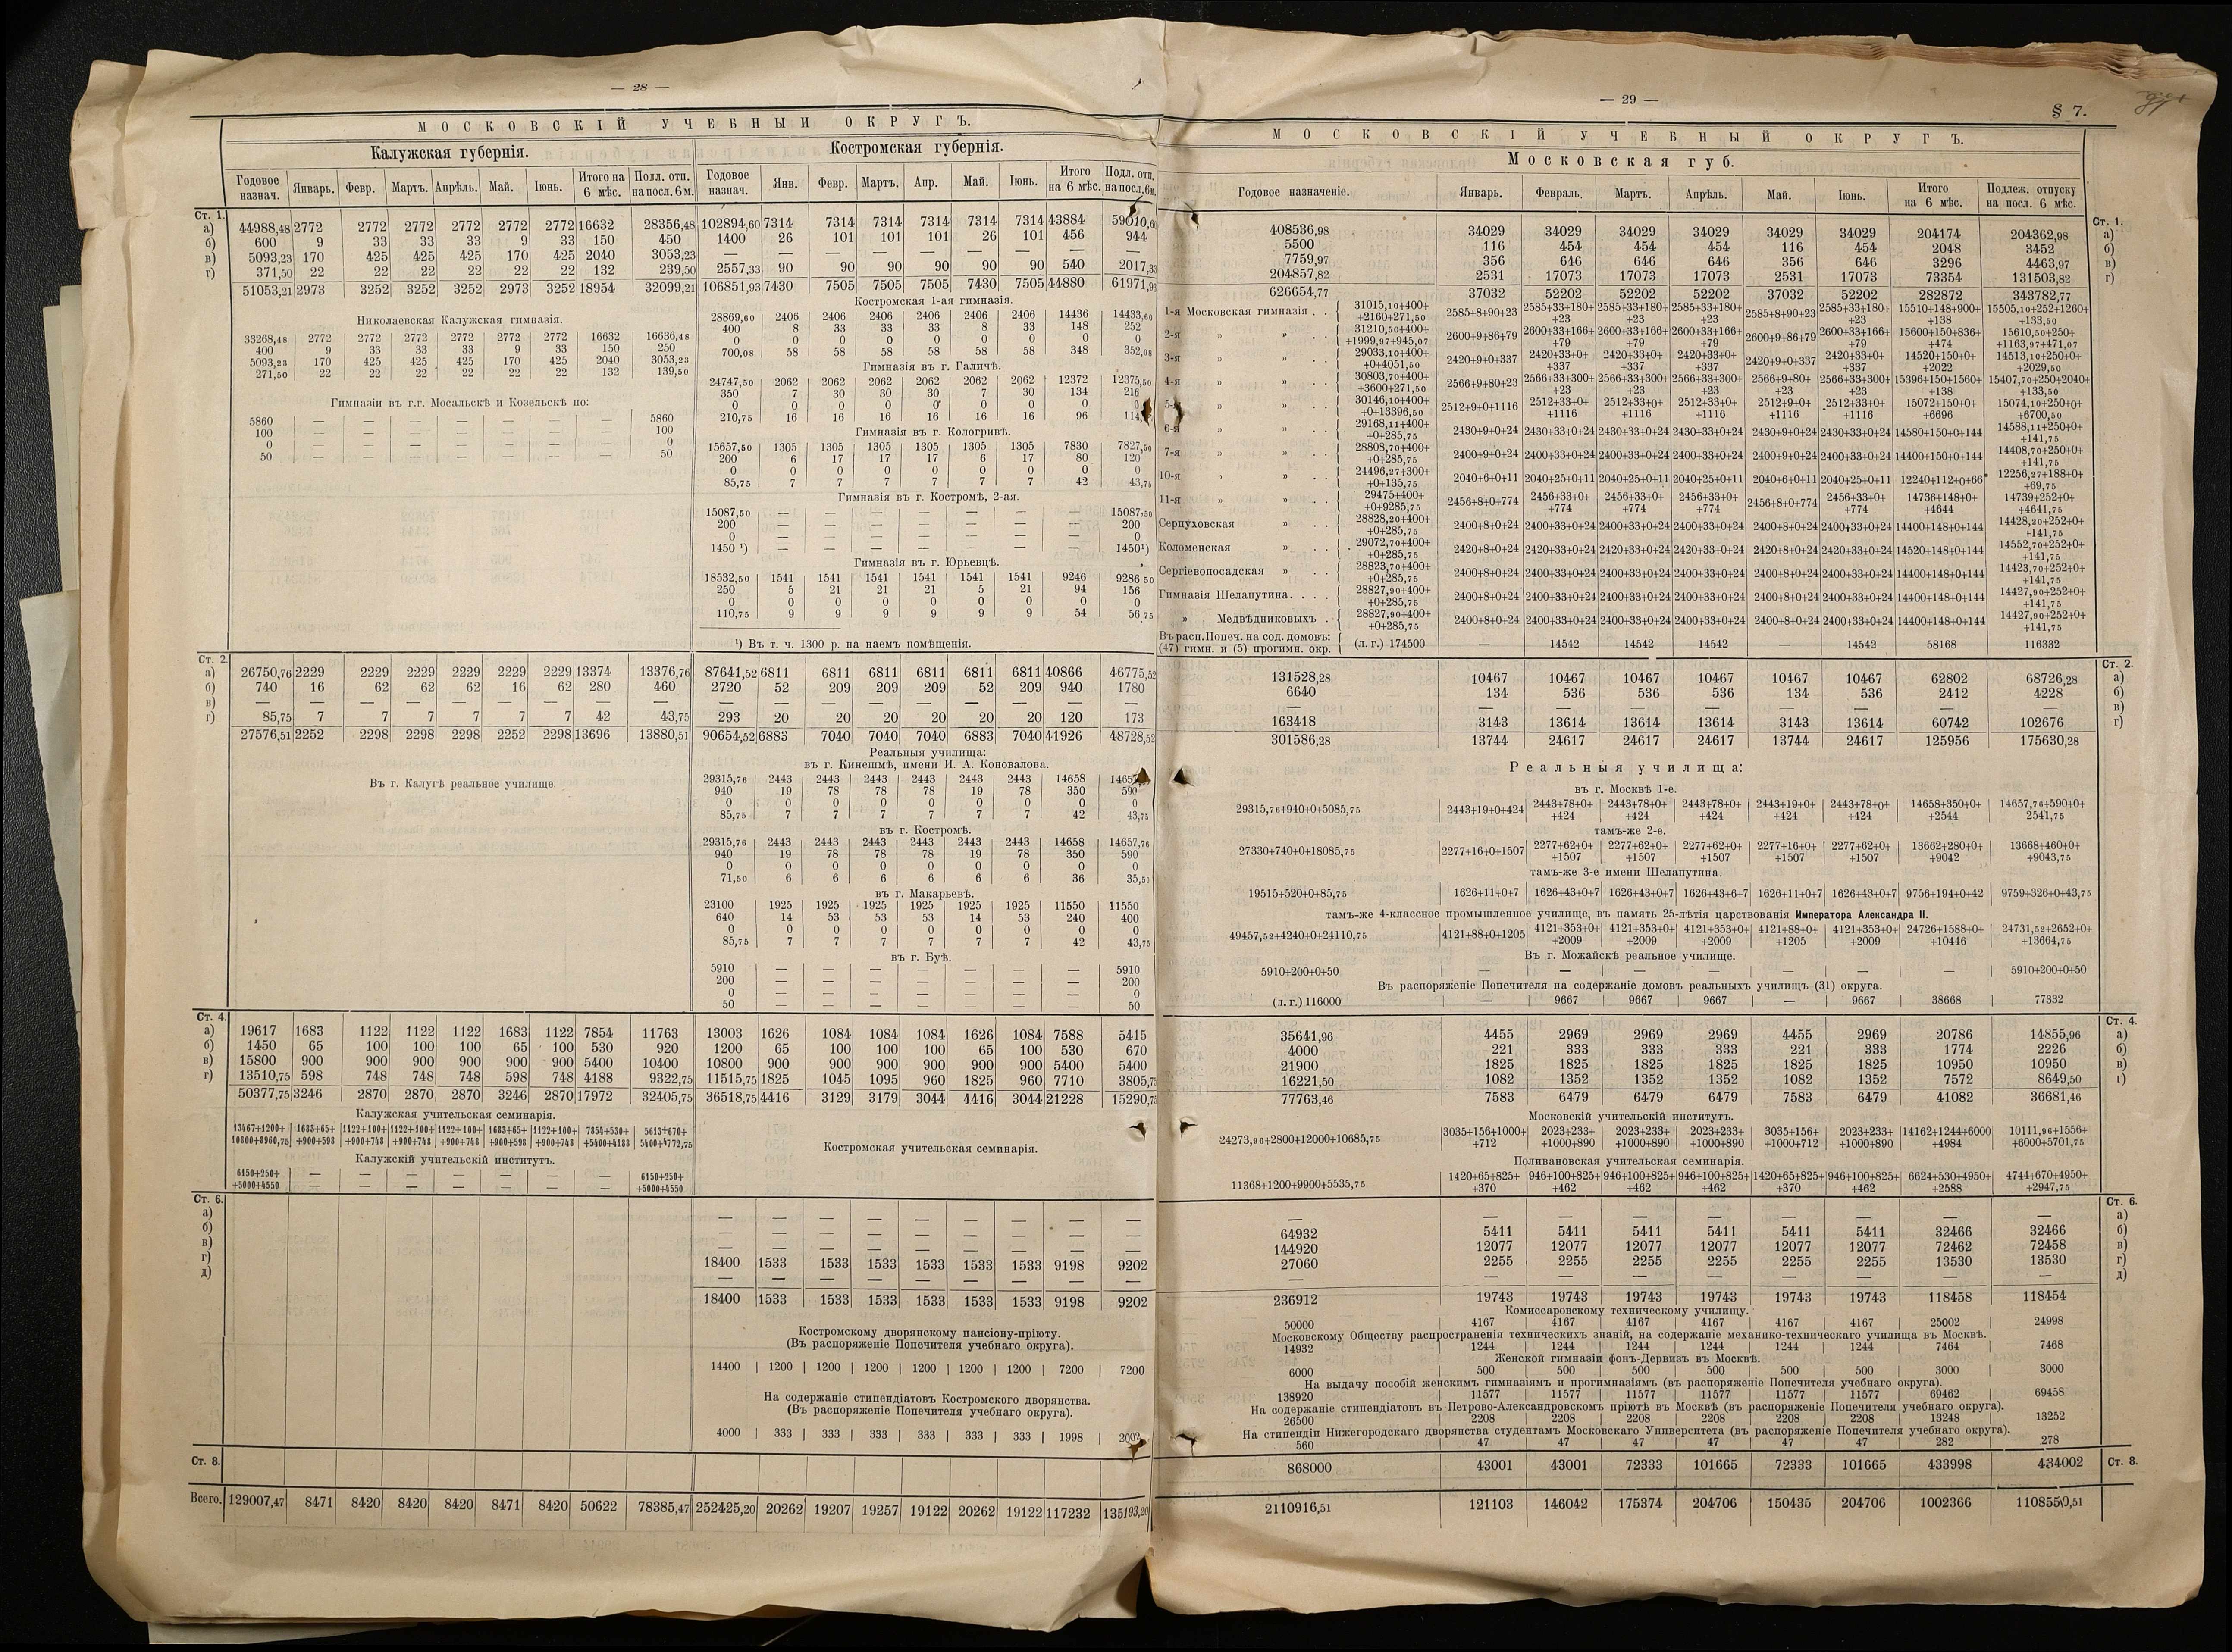 — 28 —
МОСКОВСКІЙ УЧЕБНЫЙ ОКРУГЪ.
Калужская губернія. Костромская губернія.
Годовое назнач. Январь. Февр. Мартъ. Апрѣль. Май. Іюнь. Итого на 6 мѣс. Подл. отп. на посл. 6 м. Годовое назнач. Янв. Февр. Мартъ. Апр. Май. Іюнь. Итого на 6 мѣс. Подл. отп. на посл. 6 м.
Ст. 1.
а) 44988,48 2772 2772 2772 2772 2772 2772 16632 28356,48 102894,60 7314 7314 7314 7314 7314 7314 43884
б) 600 9 33 33 33 9 33 150 450 1400 26 101 101 101 26 101 456 944
в) 5093,23 170 425 425 425 170 425 2040 3053,23 — — — — — — — — —
г) 371,50 22 22 22 22 22 22 132 239,50 2557,33 90 90 90 90 90 90 540 2017,33
51053,21 2973 3252 3252 3252 2973 3252 18954 32099,21 106851,93 7430 7505 7505 7505 7430 7505 44880 61971,93
Николаевская Калужская гимназія.
33268,48 2772 2772 2772 2772 2772 2772 16632 16636,48
400 9 33 33 33 9 33 150 250
5093,23 170 425 425 425 170 425 2040 3053,23
271,50 22 22 22 22 22 22 132 139,50
Гимназіи въ г.г. Мосальскѣ и Козельскѣ по:
5860 — — — — — — — 5860
100 — — — — — — — 100
0 — — — — — — — 0
50 — — — — — — — 50
Костромская 1-ая гимназія.
28869,60 2406 2406 2406 2406 2406 2406 14436 14433,60
400 8 33 33 33 8 33 148 252
0 0 0 0 0 0 0 0 0
700,08 58 58 58 58 58 58 348 352,08
Гимназія въ г. Галичѣ.
24747,50 2062 2062 2062 2062 2062 2062 12372 12375,50
350 7 30 30 30 7 30 134 216
0 0 0 0 0 0 0 0 0
210,75 16 16 16 16 16 16 96
Гимназія въ г. Кологривѣ.
15657,50 1305 1305 1305 1305 1305 1305 7830 7827,50
200 6 17 17 17 6 17 80 120
0 0 0 0 0 0 0 0 0
85,75 7 7 7 7 7 7 42 43,75
Гимназія въ г. Костромѣ, 2-ая.
15087,50 — — — — — — — 15087,50
200 — — — — — — — 200
0 — — — — — — — 0
1450 ¹) — — — — — — — 1450¹)
Гимназія въ г. Юрьевцѣ.
18532,50 1541 1541 1541 1541 1541 1541 9246 9286 50
250 5 21 21 21 5 21 94 156
0 0 0 0 0 0 0 0 0
110,75 9 9 9 9 9 9 54 56 75
¹) Въ т. ч. 1300 р. на наемъ помѣщенія.
Ст. 2.
а) 26750,76 2229 2229 2229 2229 2229 2229 13374 13376,76 87641,52 6811 6811 6811 6811 6811 6811 40866 46775,52
б) 740 16 62 62 62 16 62 280 460 2720 52 209 209 209 52 209 940 1780
в) — — — — — — — — — — — — — — — — — —
г) 85,75 7 7 7 7 7 7 42 43,75 293 20 20 20 20 20 20 120 173
27576,51 2252 2298 2298 2298 2252 2298 13696 13880,51 90654,52 6883 7040 7040 7040 6883 7040 41926 48728,52
Въ г. Калугѣ реальное училище.
Реальныя училища:
въ г. Кинешмѣ, имени И. А. Коновалова.
29315,76 2443 2443 2443 2443 2443 2443 14658
940 19 78 78 78 19 78 350 590
0 0 0 0 0 0 0 0 0
85,75 7 7 7 7 7 7 42 43,75
въ г. Костромѣ.
29315,76 2443 2443 2443 2443 2443 2443 14658 14657,76
940 19 78 78 78 19 78 350 590
0 0 0 0 0 0 0 0 0
71,50 6 6 6 6 6 6 36 35,50
въ г. Макарьевѣ.
23100 1925 1925 1925 1925 1925 1925 11550 11550
640 14 53 53 53 14 53 240 400
0 0 0 0 0 0 0 0 0
85,75 7 7 7 7 7 7 42 43,75
въ г. Буѣ.
5910 — — — — — — — 5910
200 — — — — — — — 200
0 — — — — — — — 0
50 — — — — — — — 50
Ст. 4.
а) 19617 1683 1122 1122 1122 1683 1122 7854 11763 13003 1626 1084 1084 1084 1626 1084 7588 5415
б) 1450 65 100 100 100 65 100 530 920 1200 65 100 100 100 65 100 530 670
в) 15800 900 900 900 900 900 900 5400 10400 10800 900 900 900 900 900 900 5400 5400
г) 13510,75 598 748 748 748 598 748 4188 9322,75 11515,75 1825 1045 1095 960 1825 960 7710 3805,75
50377,75 3246 2870 2870 2870 3246 2870 17972 32405,75 36518,75 4416 3129 3179 3044 4416 3044 21228 15290,75
Калужская учительская семинарія.
13467+1200+ 1683+65+ 1122+100+ 1122+100+ 1122+100+ 1683+65+ 1122+100+ 7854+530+ 5613+670+
10800+8960,75 +900+598 +900+748 +900+748 +900+748 +900+598 +900+748 +5400+4188 5400+4772,75
Калужскій учительскій институтъ.
6150+250+ — — — — — — — 6150+250+
+5000+4550 — — — — — — — +5000+4550
Костромская учительская семинарія.
Ст. 6.
а) — — — — — — — — —
б) — — — — — — — — —
в) — — — — — — — — —
г) 18400 1533 1533 1533 1533 1533 1533 9198 9202
д) — — — — — — — — —
18400 1533 1533 1533 1533 1533 1533 9198 9202
Костромскому дворянскому пансіону-пріюту.
(Въ распоряженіе Попечителя учебнаго округа).
14400 1200 1200 1200 1200 1200 1200 7200 7200
На содержаніе стипендіатовъ Костромского дворянства.
(Въ распоряженіе Попечителя учебнаго округа).
4000 333 333 333 333 333 333 1998 2002
Ст. 8.
Всего. 129007,47 8471 8420 8420 8420 8471 8420 50622 78385,47 252425,20 20262 19207 19257 19122 20262 19122 117232 135193,20
— 29 —
§ 7.
МОСКОВСКІЙ УЧЕБНЫЙ ОКРУГЪ.
Московская губ.
Годовое назначеніе. Январь. Февраль. Мартъ. Апрѣль. Май. Іюнь. Итого на 6 мѣс. Подлеж. отпуску на посл. 6 мѣс.
Ст. 1.
408536,98 34029 34029 34029 34029 34029 34029 204174 204362,98 а)
5500 116 454 454 454 116 454 2048 3452 б)
7759,97 356 646 646 646 356 646 3296 4463,97 в)
204857,82 2531 17073 17073 17073 2531 17073 73354 131503,82 г)
626654,77 37032 52202 52202 52202 37032 52202 282872 343782,77
1-я Московская гимназія . . 31015,10+400+ +2160+271,50 2585+8+90+23 2585+33+180+ +23 2585+33+180+ +23 2585+33+180+ +23 2585+8+90+23 2585+33+180+ +23 15510+148+900+ +138 15505,10+252+1260+ +133,50
2-я » » . . 31210,50+400+ +1999,97+945,07 2600+9+86+79 2600+33+166+ +79 2600+33+166+ +79 2600+33+166+ +79 2600+9+86+79 2600+33+166+ +79 15600+150+836+ +474 15610,50+250+ +1163,97+471,07
3-я » » . . 29033,10+400+ +0+4051,50 2420+9+0+337 2420+33+0+ +337 2420+33+0+ +337 2420+33+0+ +337 2420+9+0+337 2420+33+0+ +337 14520+150+0+ +2022 14513,10+250+0+ +2029,50
4-я » » . . 30803,70+400+ +3600+271,50 2566+9+80+23 2566+33+300+ +23 2566+33+300+ +23 2566+33+300+ +23 2566+9+80+ +23 2566+33+300+ +23 15396+150+1560+ +138 15407,70+250+2040+ +133,50
5-я » » . . 30146,10+400+ +0+13396,50 2512+9+0+1116 2512+33+0+ +1116 2512+33+0+ +1116 2512+33+0+ +1116 2512+9+0+ +1116 2512+33+0+ +1116 15072+150+0+ +6696 15074,10+250+0+ +6700,50
6-я » » . . 29168,11+400+ +0+285,75 2430+9+0+24 2430+33+0+24 2430+33+0+24 2430+33+0+24 2430+9+0+24 2430+33+0+24 14580+150+0+144 14588,11+250+0+ +141,75
7-я » » . . 28808,70+400+ +0+285,75 2400+9+0+24 2400+33+0+24 2400+33+0+24 2400+33+0+24 2400+9+0+24 2400+33+0+24 14400+150+0+144 14408,70+250+0+ +141,75
10-я » » . . 24496,27+300+ +0+135,75 2040+6+0+11 2040+25+0+11 2040+25+0+11 2040+25+0+11 2040+6+0+11 2040+25+0+11 12240+112+0+66 12256,27+188+0+ +69,75
11-я » » . . 29475+400+ +0+9285,75 2456+8+0+774 2456+33+0+ +774 2456+33+0+ +774 2456+33+0+ +774 2456+8+0+774 2456+33+0+ +774 14736+148+0+ +4644 14739+252+0+ +4641,75
Серпуховская » . . 28828,20+400+ +0+285,75 2400+8+0+24 2400+33+0+24 2400+33+0+24 2400+33+0+24 2400+8+0+24 2400+33+0+24 14400+148+0+144 14428,20+252+0+ +141,75
Коломенская » . . 29072,70+400+ +0+285,75 2420+8+0+24 2420+33+0+24 2420+33+0+24 2420+33+0+24 2420+8+0+24 2420+33+0+24 14520+148+0+144 14552,70+252+0+ +141,75
Сергіевопосадская » . . 28823,70+400+ +0+285,75 2400+8+0+24 2400+33+0+24 2400+33+0+24 2400+33+0+24 2400+8+0+24 2400+33+0+24 14400+148+0+144 14423,70+252+0+ +141,75
Гимназія Шелапутина. . . . 28827,90+400+ +0+285,75 2400+8+0+24 2400+33+0+24 2400+33+0+24 2400+33+0+24 2400+8+0+24 2400+33+0+24 14400+148+0+144 14427,90+252+0+ +141,75
» Медвѣдниковыхъ . 28827,90+400+ +0+285,75 2400+8+0+24 2400+33+0+24 2400+33+0+24 2400+33+0+24 2400+8+0+24 2400+33+0+24 14400+148+0+144 14427,90+252+0+ +141,75
Въ расп. Попеч. на сод. домовъ:
(47) гимн. и (5) прогимн. окр. (л. г.) 174500 — 14542 14542 14542 — 14542 58168 116332
Ст. 2.
131528,28 10467 10467 10467 10467 10467 10467 62802 68726,28 а)
6640 134 536 536 536 134 536 2412 4228 б)
— — — — — — — — — в)
163418 3143 13614 13614 13614 3143 13614 60742 102676 г)
301586,28 13744 24617 24617 24617 13744 24617 125956 175630,28
Реальныя училища:
въ г. Москвѣ 1-е.
29315,76+940+0+5085,75 2443+19+0+424 2443+78+0+ +424 2443+78+0+ +424 2443+78+0+ +424 2443+19+0+ +424 2443+78+0+ +424 14658+350+0+ +2544 14657,76+590+0+ 2541,75
тамъ-же 2-е.
27330+740+0+18085,75 2277+16+0+1507 2277+62+0+ +1507 2277+62+0+ +1507 2277+62+0+ +1507 2277+16+0+ +1507 2277+62+0+ +1507 13662+280+0+ +9042 13668+460+0+ +9043,75
тамъ-же 3-е имени Шелапутина.
19515+520+0+85,75 1626+11+0+7 1626+43+0+7 1626+43+0+7 1626+43+6+7 1626+11+0+7 1626+43+0+7 9756+194+0+42 9759+326+0+43,75
тамъ-же 4-классное промышленное училище, въ память 25-лѣтія царствованія Императора Александра II.
49457,52+4240+0+24110,75 4121+88+0+1205 4121+353+0+ +2009 4121+353+0+ +2009 4121+353+0+ +2009 4121+88+0+ +1205 4121+353+0+ +2009 24726+1588+0+ +10446 24731,52+2652+0+ +13664,75
Въ г. Можайскѣ реальное училище.
5910+200+0+50 — — — — — — — 5910+200+0+50
Въ распоряженіе Попечителя на содержаніе домовъ реальныхъ училищъ (31) округа.
(л. г.) 116000 — 9667 9667 9667 — 9667 38668 77332
Ст. 4.
35641,96 4455 2969 2969 2969 4455 2969 20786 14855,96 а)
4000 221 333 333 333 221 333 1774 2226 б)
21900 1825 1825 1825 1825 1825 1825 10950 10950 в)
16221,50 1082 1352 1352 1352 1082 1352 7572 8649,50 г)
77763,46 7583 6479 6479 6479 7583 6479 41082 36681,46
Московскій учительскій институтъ.
24273,96+2800+12000+10685,75 3035+156+1000+ +712 2023+233+ +1000+890 2023+233+ +1000+890 2023+233+ +1000+890 3035+156+ +1000+712 2023+233+ +1000+890 14162+1244+6000 +4984 10111,96+1556+ +6000+5701,75
Поливановская учительская семинарія.
11368+1200+9900+5535,75 1420+65+825+ +370 946+100+825+ +462 946+100+825+ +462 946+100+825+ +462 1420+65+825+ +370 946+100+825+ +462 6624+530+4950+ +2588 4744+670+4950+ +2947,75
Ст. 6.
— — — — — — — — — а)
64932 5411 5411 5411 5411 5411 5411 32466 32466 б)
144920 12077 12077 12077 12077 12077 12077 72462 72458 в)
27060 2255 2255 2255 2255 2255 2255 13530 13530 г)
— — — — — — — — — д)
236912 19743 19743 19743 19743 19743 19743 118458 118454
Комиссаровскому техническому училищу.
50000 4167 4167 4167 4167 4167 4167 25002 24998
Московскому Обществу распространенія техническихъ знаній, на содержаніе механико-техническаго училища въ Москвѣ.
14932 1244 1244 1244 1244 1244 1244 7464 7468
Женской гимназіи фонъ-Дервизъ въ Москвѣ.
6000 500 500 500 500 500 500 3000 3000
На выдачу пособій женскимъ гимназіямъ и прогимназіямъ (въ распоряженіе Попечителя учебнаго округа).
138920 11577 11577 11577 11577 11577 11577 69462 69458
На содержаніе стипендіатовъ въ Петрово-Александровскомъ пріютѣ въ Москвѣ (въ распоряженіе Попечителя учебнаго округа).
26500 2208 2208 2208 2208 2208 2208 13248 13252
На стипендіи Нижегородскаго дворянства студентамъ Московскаго Университета (въ распоряженіе Попечителя учебнаго округа).
560 47 47 47 47 47 47 282 278
868000 43001 43001 72333 101665 72333 101665 433998 434002 Ст. 8.
2110916,51 121103 146042 175374 204706 150435 204706 1002366 1108550,51